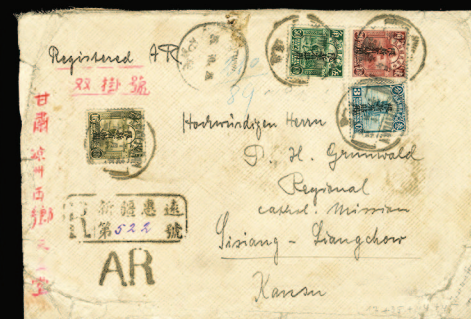 Registered AR
双掛號
甘肅涼州西鄉天一堂
Hochwürdigen Herrn
P. H. Grunwald
Regional
Cathol. Mission
Sisiang - Liangchow
Kansu
R
新疆惠遠
第522號
AR